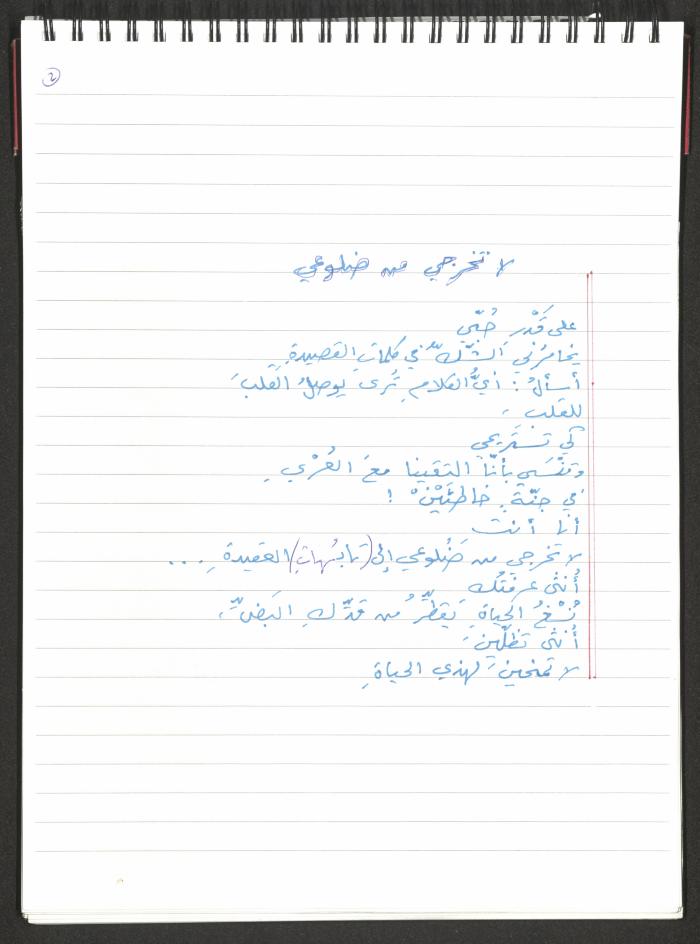 ②
لا تخرجي من ضلوعي
على قَدْر حُبّي
يخامرُني الشكُّ في كلماتِ القصيدةِ
أسألُ : أيُّ الكلامِ تُرى يوصلُ القلبَ
للقلب ،
كي تستريحي
وتنْسَي بأنّا التقينا معَ العُرْيِ
في جنّةٍ خاطئَيْنْ !
أنا أنت
لا تخرجي من ضُلوعي إلى (تابُهاتِ) العقيدةِ ...
أُنثى عرفتُك
نُسْغُ الحياةِ يَقطّرُ من قدّكِ البَضِّ ،
أُنثى تظلّينَ
لا تمنحينَ لهذي الحياةِ